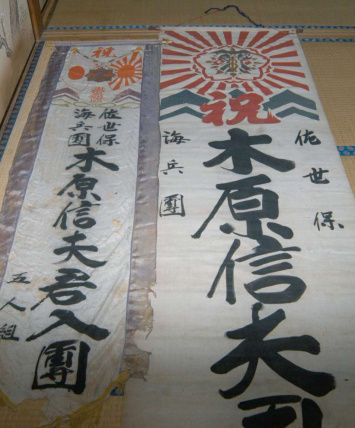 祝
佐世保
海兵團
木原信夫
祝
佐世保
海兵團
木原信夫君入團
五人組